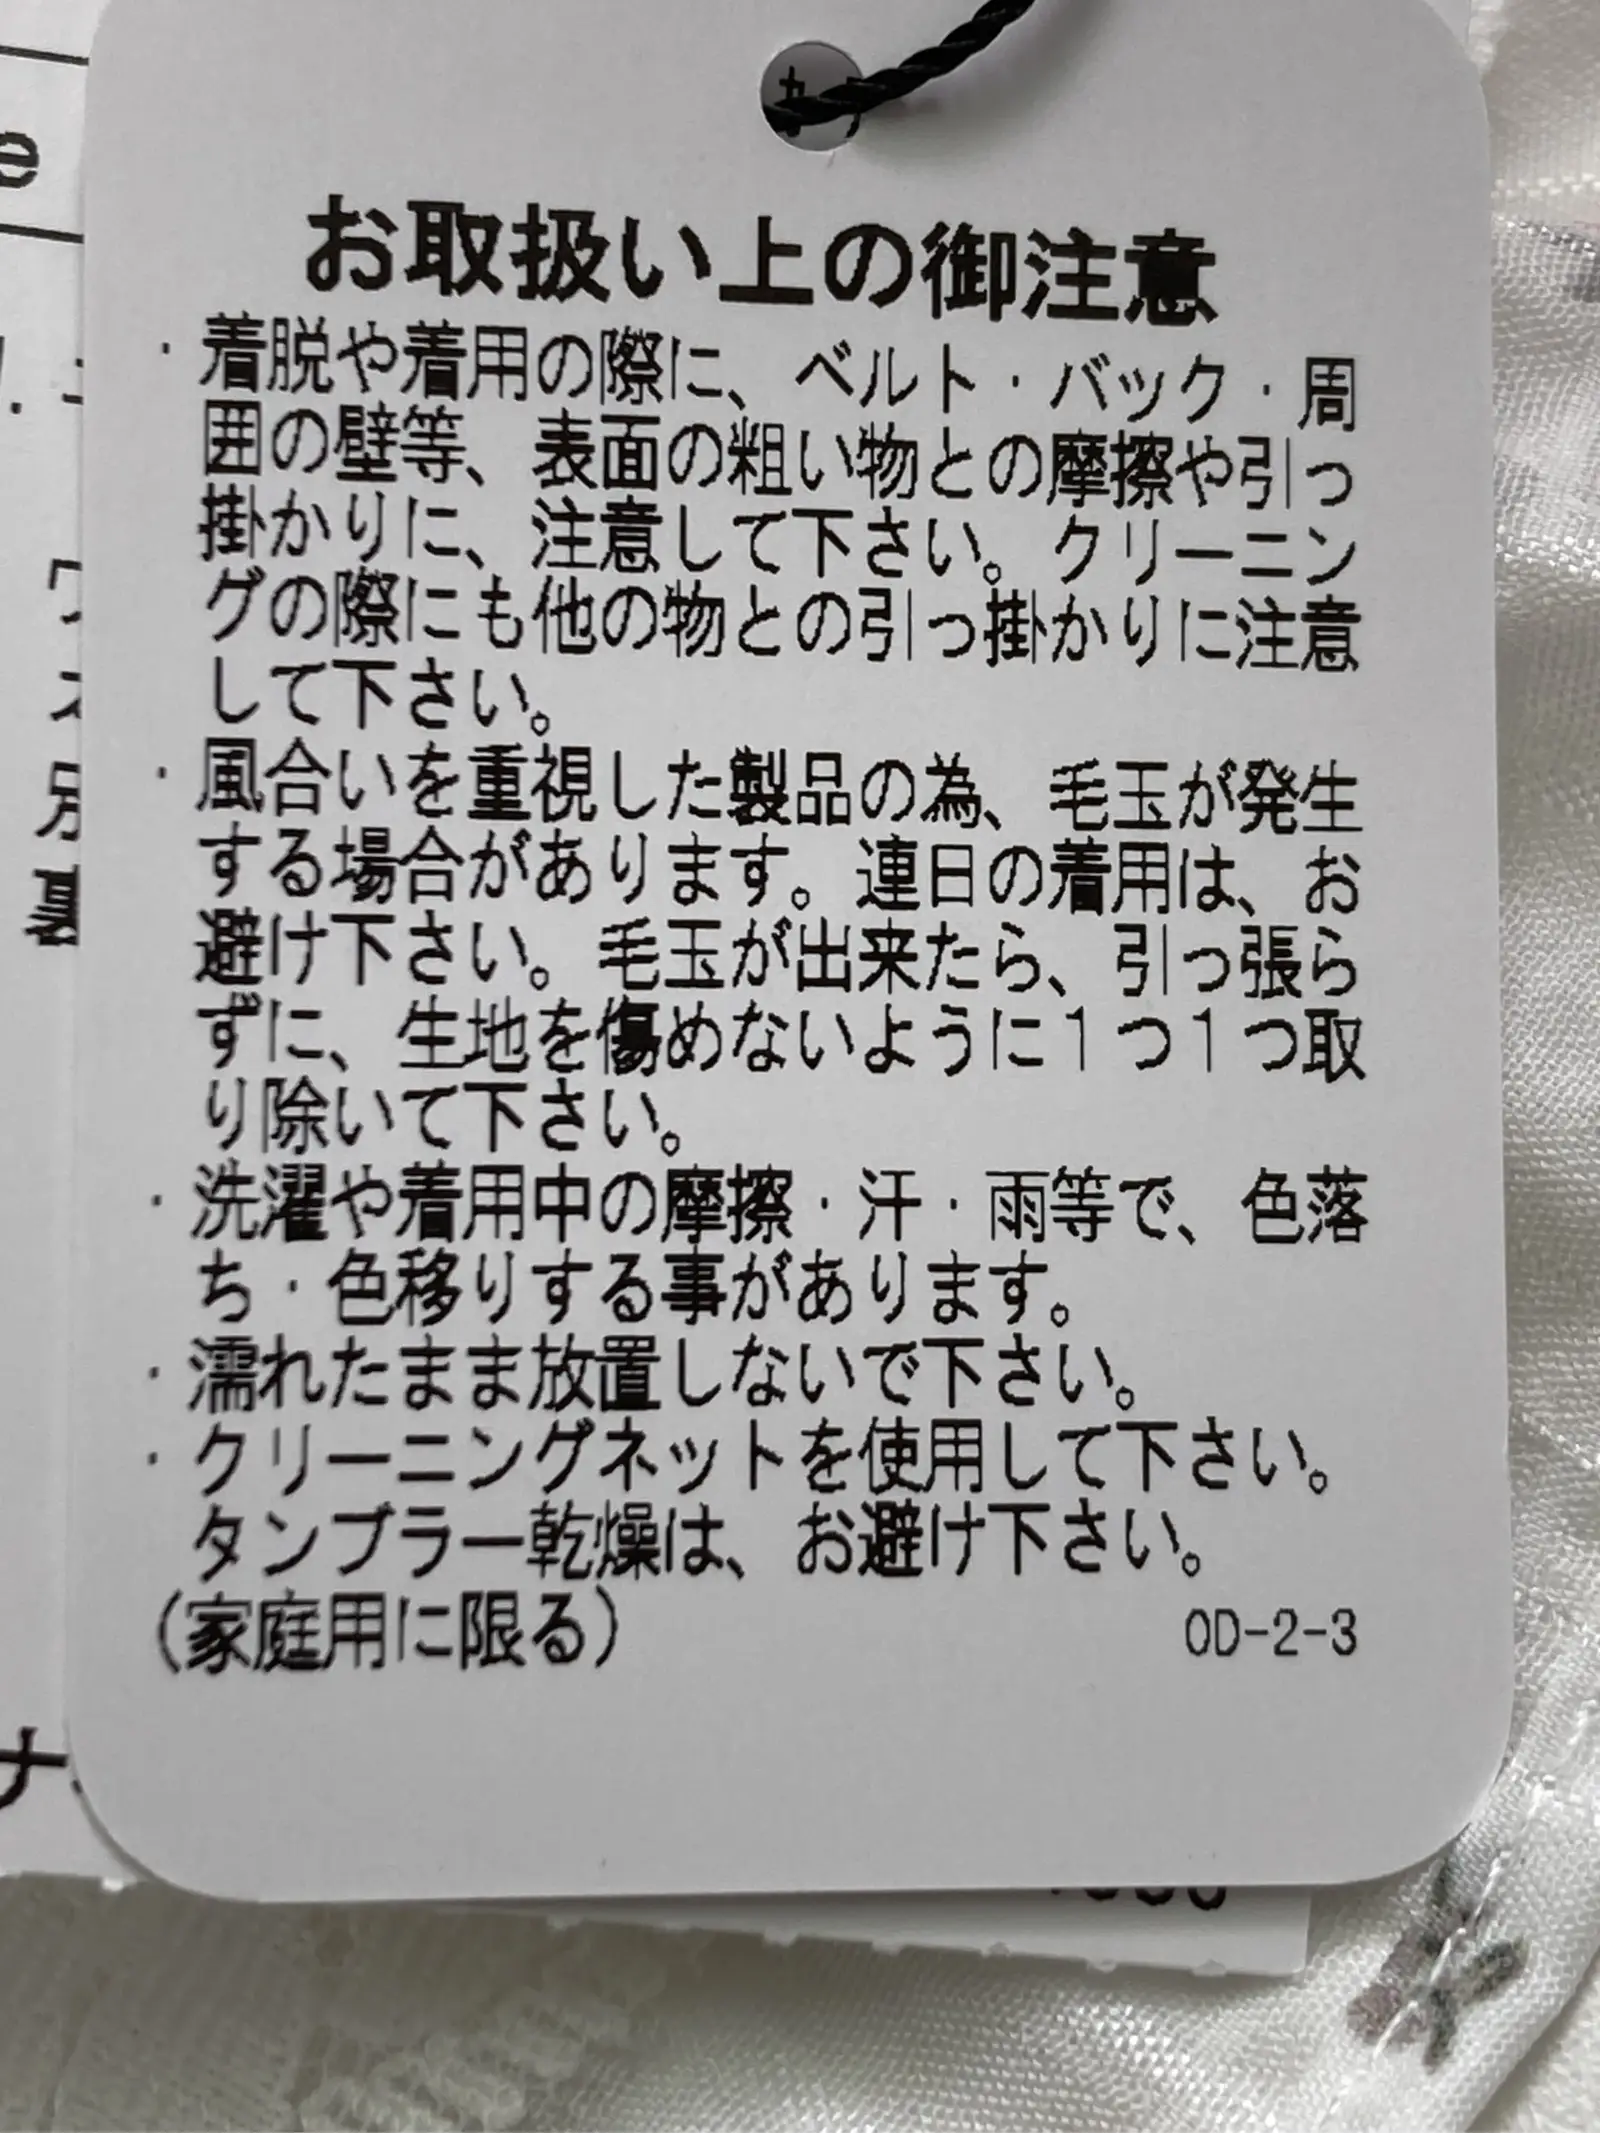 お取扱い上の御注意
・着脱や着用の際に、ベルト・バック・周
囲の壁等、表面の粗い物との摩擦や引っ
掛かりに、注意して下さい。クリーニン
グの際にも他の物との引っ掛かりに注意
して下さい。
・風合いを重視した製品の為、毛玉が発生
する場合があります。連日の着用は、お
避け下さい。毛玉が出来たら、引っ張ら
ずに、生地を傷めないように1つ1つ取
り除いて下さい。
・洗濯や着用中の摩擦・汗・雨等で、色落
ち・色移りする事があります。
・濡れたまま放置しないで下さい。
・クリーニングネットを使用して下さい。
タンブラー乾燥は、お避け下さい。
(家庭用に限る) OD-2-3
e
ナ